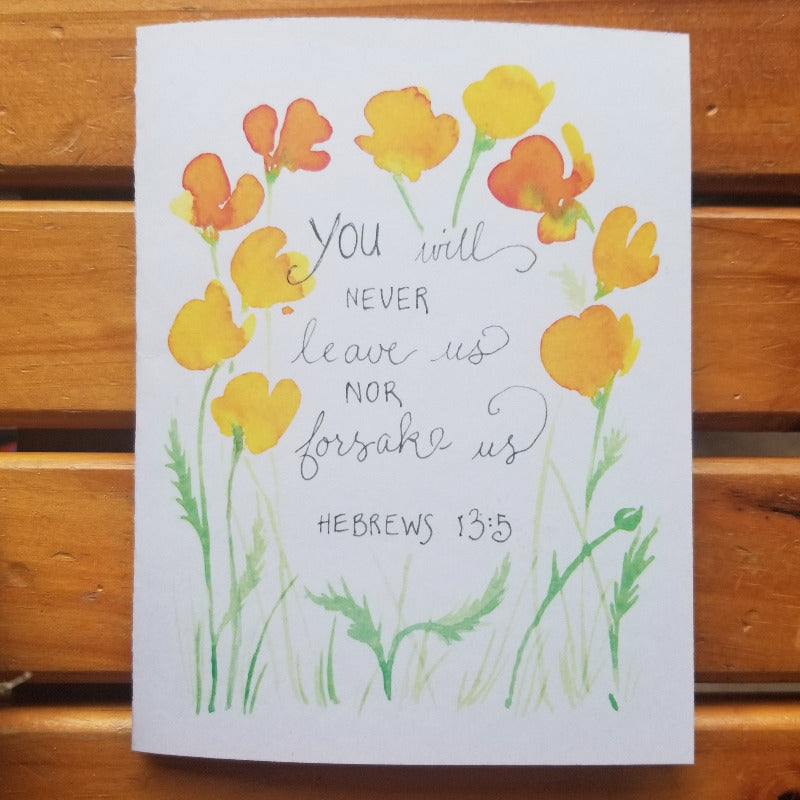 YOU will
NEVER
leave us
NOR
forsake us
HEBREWS 13:5